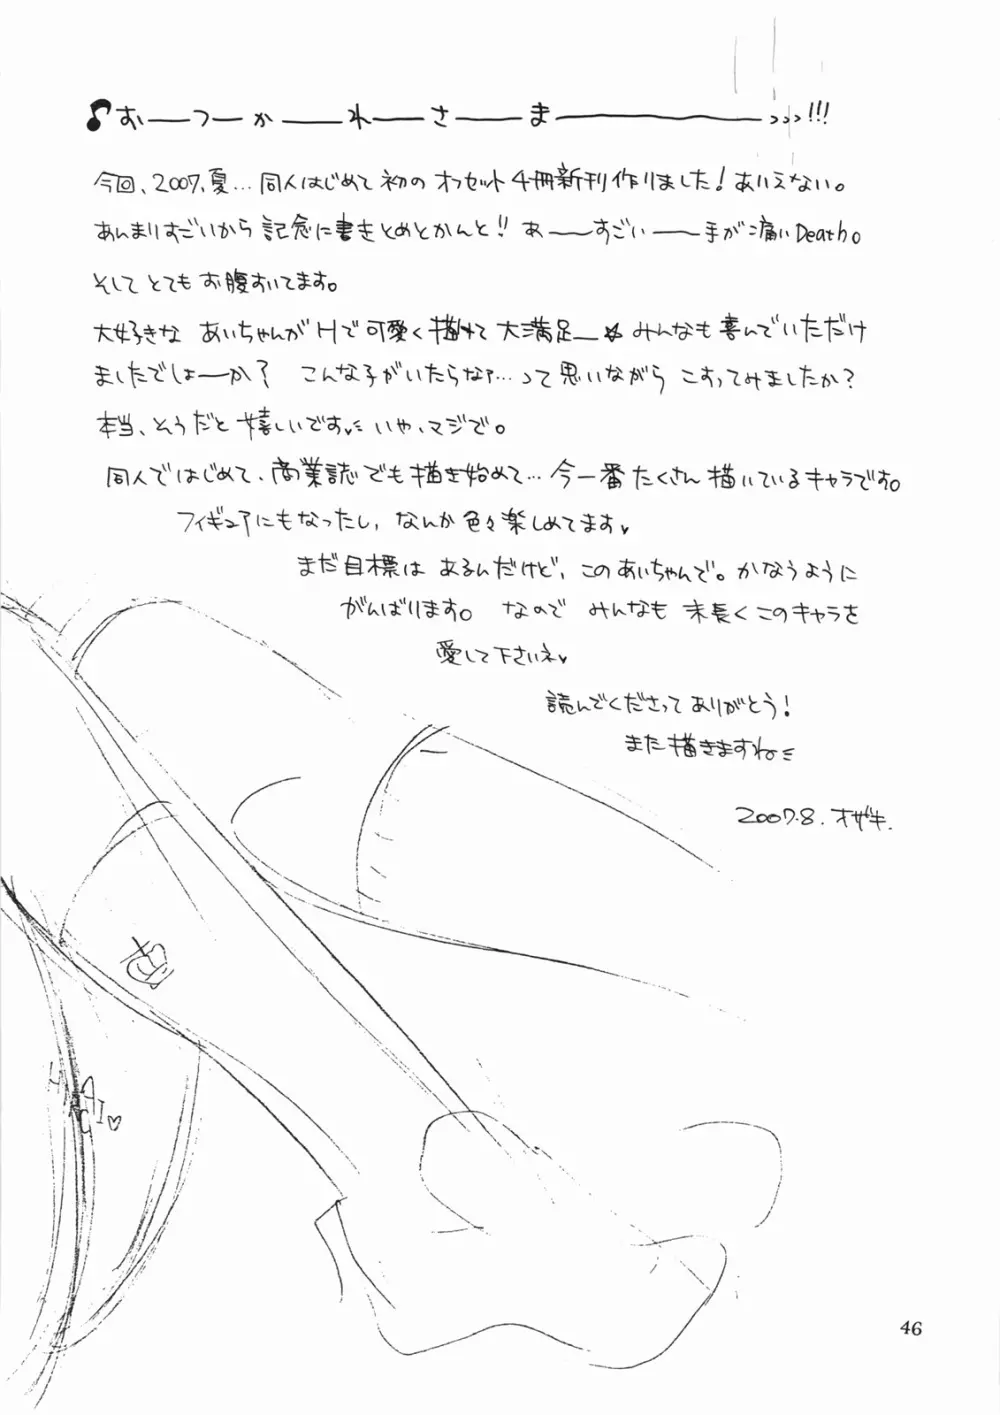 ♪おーつーかーれーさーまー>>>!!!
今回、2007,夏…同人はじめて初のオフセット4冊新刊作りました!ありえない。
あんまりすごいから記念に書きとめとかんと!! あーーすごいーー手が痛いDeath。
そしてとてもお腹すいてます。
大好きなあいちゃんがHで可愛く描けて大満足ー☆みんなも喜んでいただけ
ましたでしょーか? こんな子がいたらなァ…って思いながらこすってみましたか?
本当、そうだと嬉しいです いや、マジで。
同人ではじめて、商業誌でも描き始めて…今一番たくさん描いているキャラです。
フィギュアにもなったし、なんか色々楽しめてます♥
まだ目標はあるんだけど、このあいちゃんで。かなうように
がんばります。 なのでみんなも末長くこのキャラを
愛して下さいネ♥
読んでくださってありがとう!
また描きますね
2007.8.オザキ.
AI♡
46